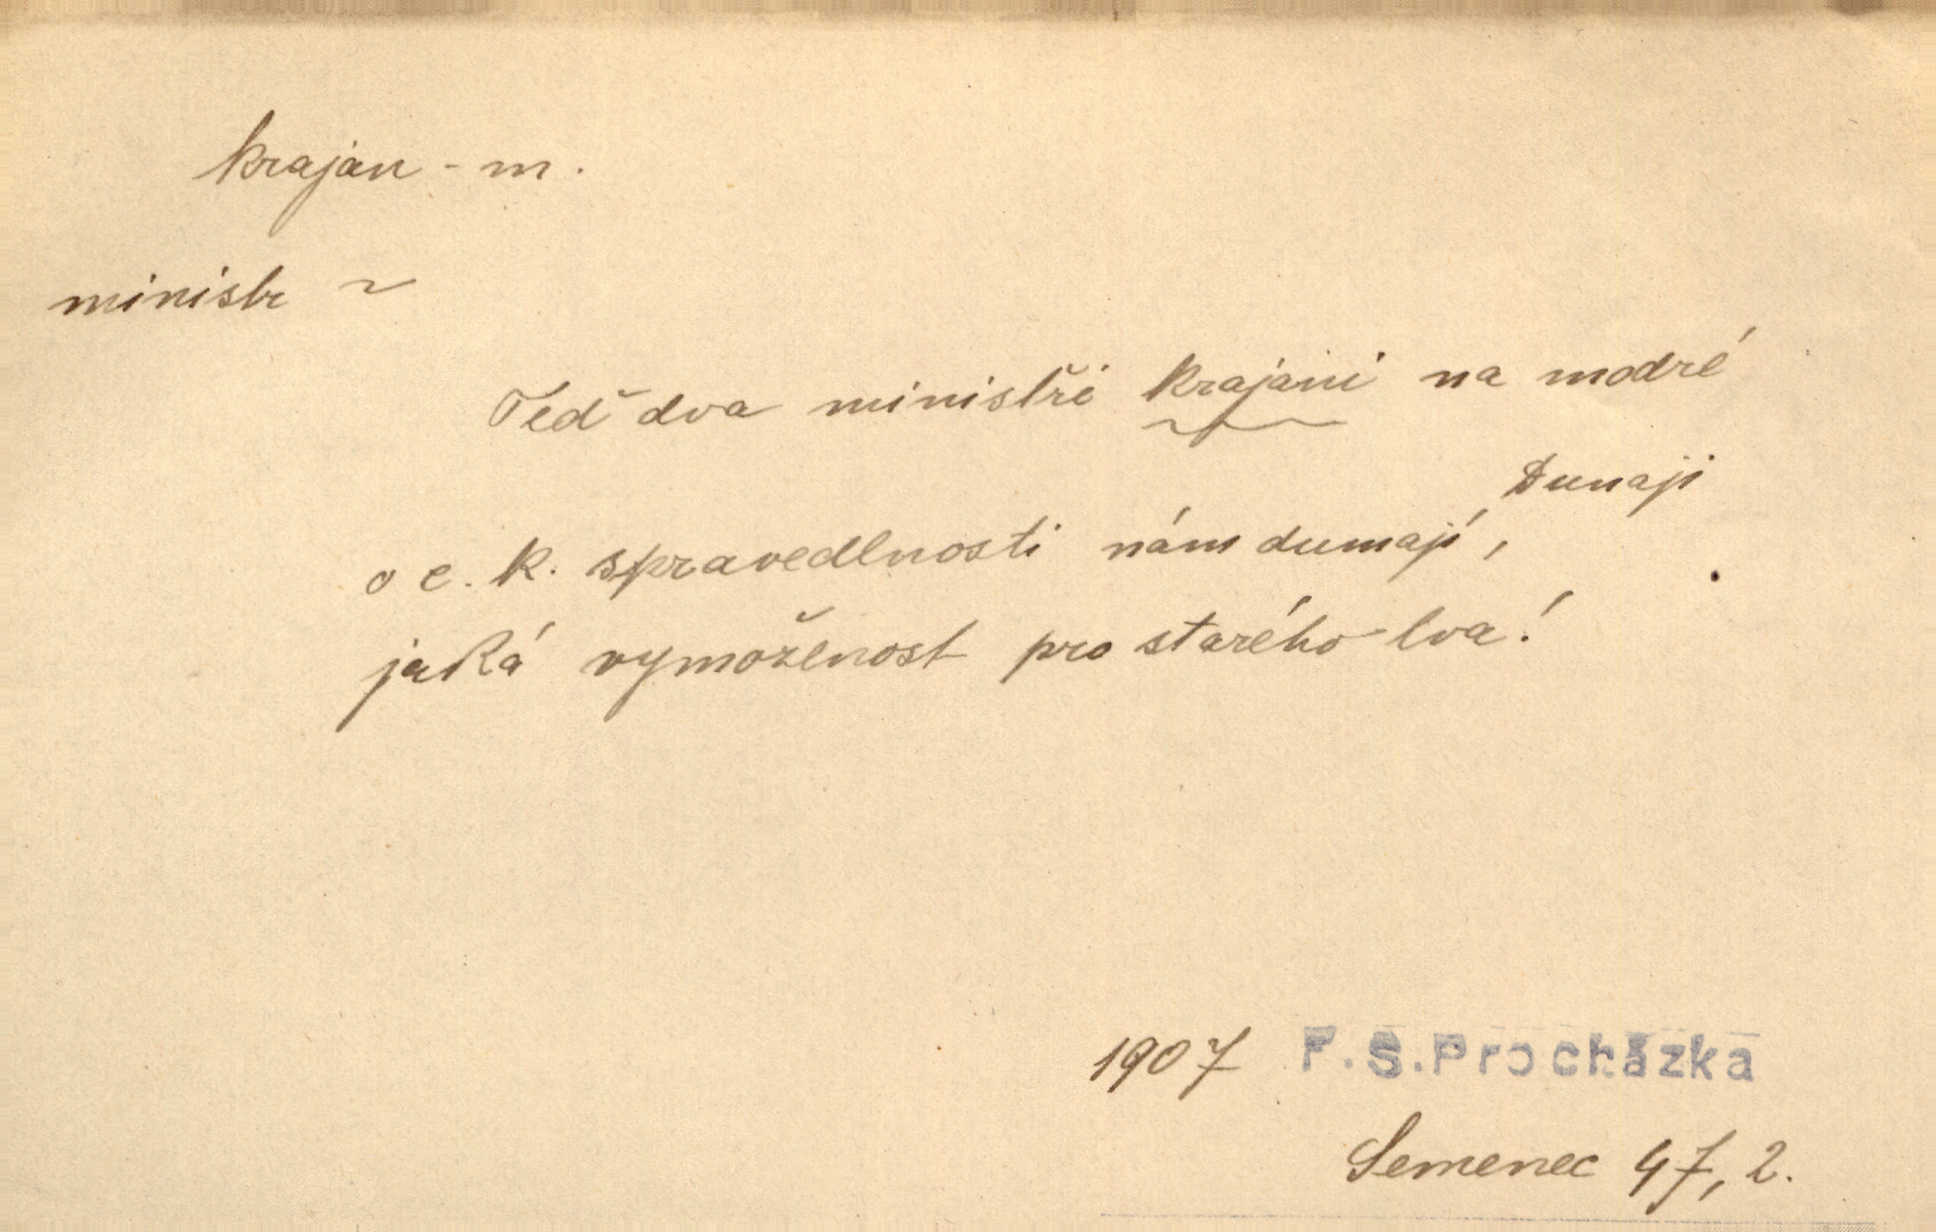 krajan - m.
ministr ~
Teď dva ministři krajani na modré
Dunaji
o c. k. spravedlnosti nám dumají,
jaká vymoženost pro starého lva!
1907 F. S. Procházka
Semenec 47, 2.